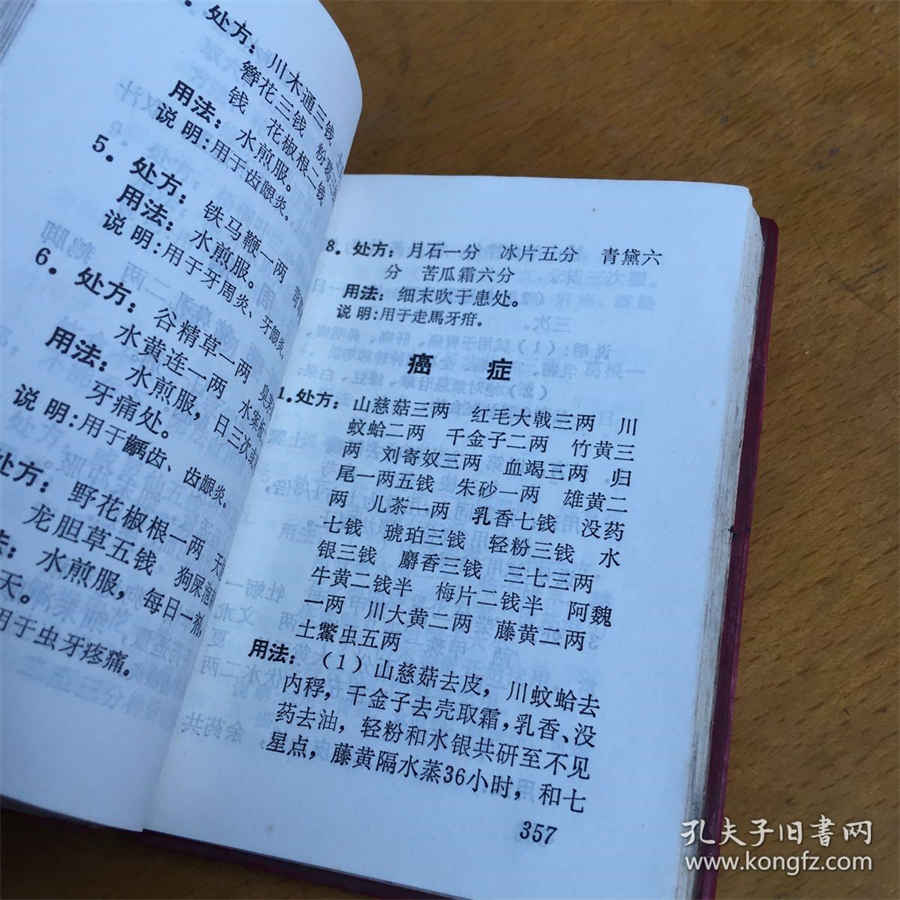 处方：川木通三钱
簪花三钱
钱 花椒根二钱
用法：水煎服。
说明：用于齿龈炎。
5. 处方：铁马鞭一两
用法：水煎服。
说明：用于牙周炎、牙龈炎。
6. 处方：谷精草一两
水黄连一两
用法：水煎服，日三次
牙痛处。
说明：用于龋齿、齿龈炎。
处方：野花椒根一两
龙胆草五钱
法：水煎服，每日一剂
天。
用于虫牙疼痛。
8. 处方：月石一分 冰片五分 青黛六
分 苦瓜霜六分
用法：细末吹于患处。
说明：用于走馬牙疳。
癌 症
1. 处方：山慈菇三两 红毛大戟三两 川
蚊蛤二两 千金子二两 竹黄三
两 刘寄奴三两 血竭三两 归
尾一两五钱 朱砂一两 雄黄二
两 儿茶一两 乳香七钱 没药
七钱 琥珀三钱 轻粉三钱 水
银三钱 麝香三钱 三七三两
牛黄二钱半 梅片二钱半 阿魏
一两 川大黄二两 藤黄二两
土鳖虫五两
用法：（1）山慈菇去皮，川蚊蛤去
内稃，千金子去壳取霜，乳香、没
药去油，轻粉和水银共研至不见
星点，藤黄隔水蒸36小时，和七
357
孔夫子旧書网
www.kongfz.com